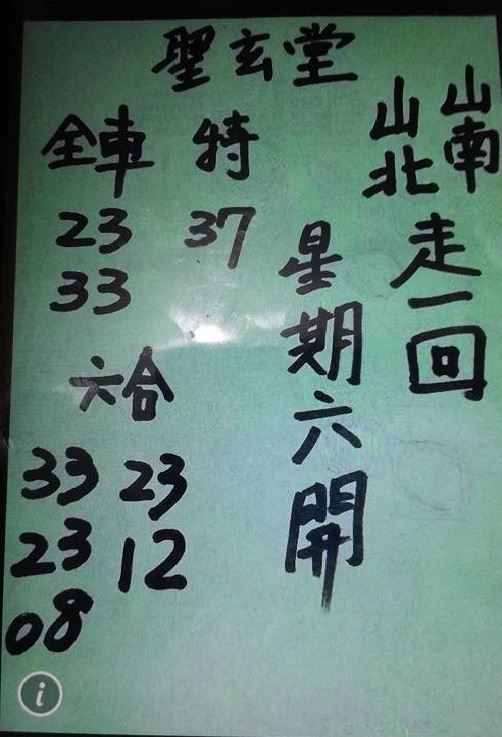 聖玄堂
山南
山北
走一回
星期六開
特
37
全車
23
33
六合
33 23
23 12
08